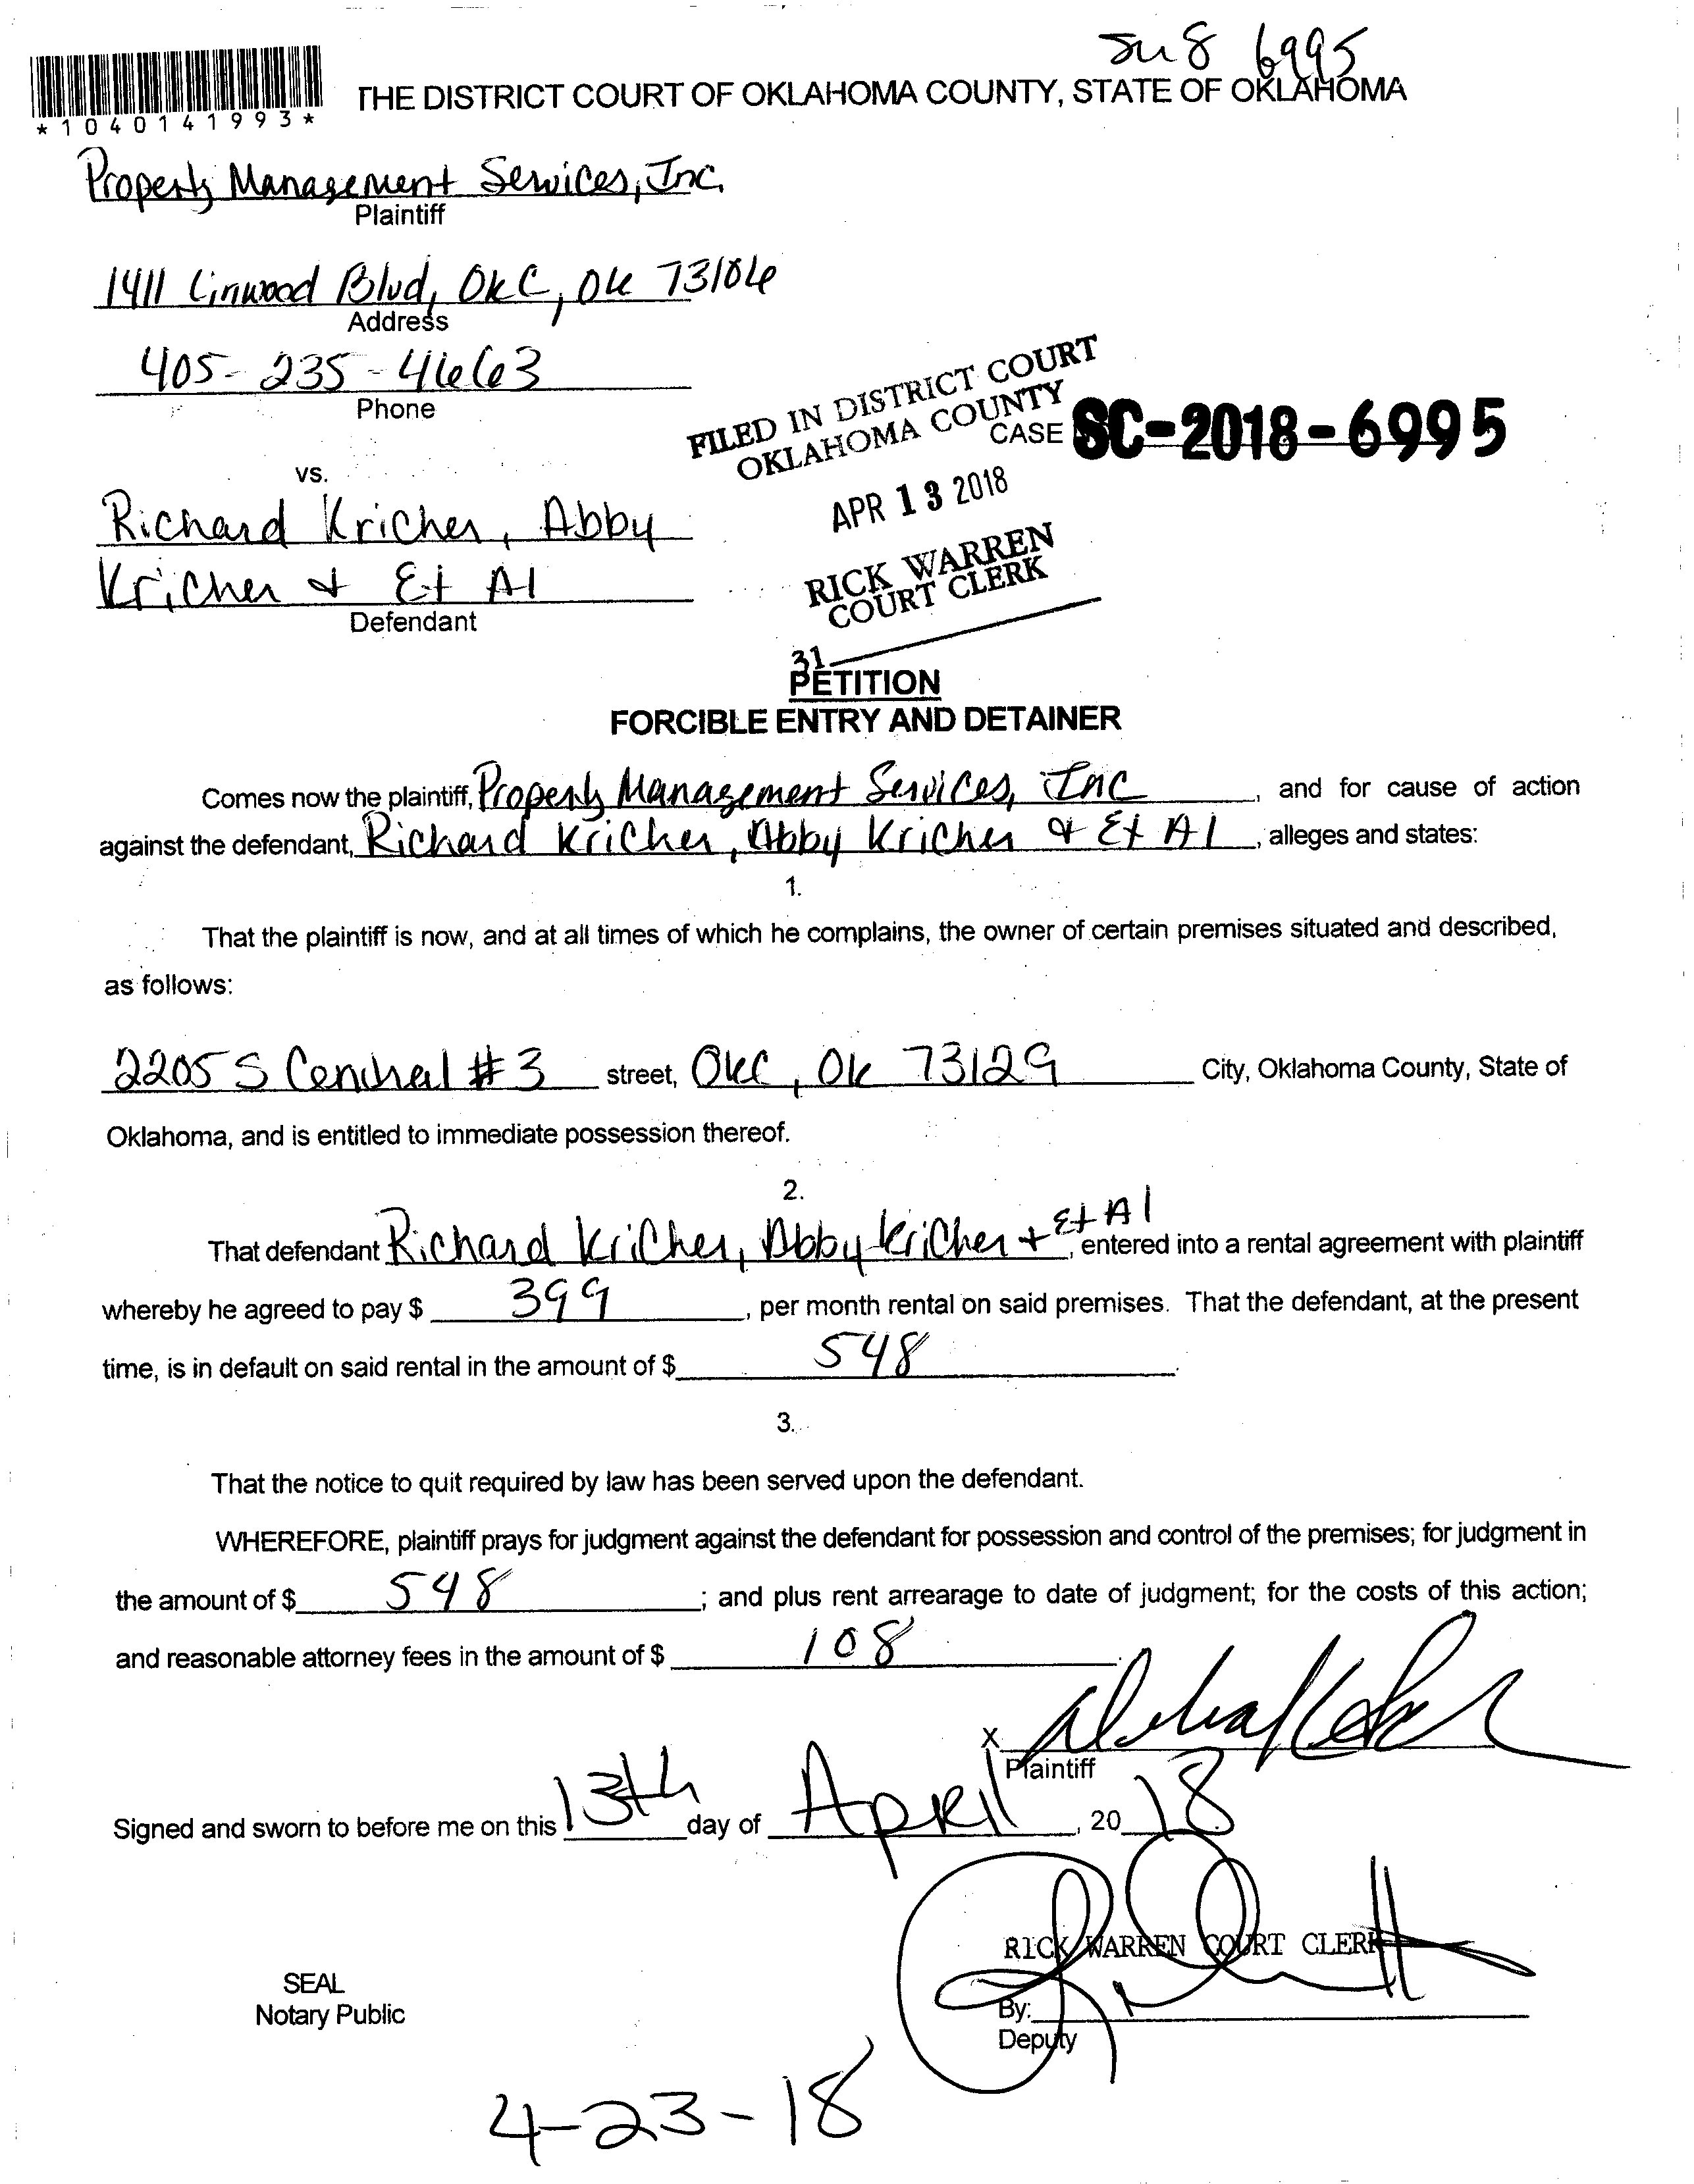 Su8 6995
THE DISTRICT COURT OF OKLAHOMA COUNTY, STATE OF OKLAHOMA
*1040141993*
Property Management Services, Inc.
Plaintiff
1411 Linwood Blvd, OKC, Ok 73106
Address
405-235-4663
Phone
FILED IN DISTRICT COURT
OKLAHOMA COUNTY
CASE SC-2018-6995
vs.
APR 13 2018
Richard Kricher, Abby
Kricher & Et Al
Defendant
RICK WARREN
COURT CLERK
31
PETITION
FORCIBLE ENTRY AND DETAINER
Comes now the plaintiff, Property Management Services, Inc, and for cause of action
against the defendant, Richard Kricher, Abby Kricher & Et Al, alleges and states:
1.
That the plaintiff is now, and at all times of which he complains, the owner of certain premises situated and described,
as follows:
2205 S Central #3 street, OKC, Ok 73129 City, Oklahoma County, State of
Oklahoma, and is entitled to immediate possession thereof.
2.
That defendant Richard Kricher, Abby Kricher + Et Al, entered into a rental agreement with plaintiff
whereby he agreed to pay $ 399, per month rental on said premises. That the defendant, at the present
time, is in default on said rental in the amount of $ 548.
3.
That the notice to quit required by law has been served upon the defendant.
WHEREFORE, plaintiff prays for judgment against the defendant for possession and control of the premises; for judgment in
the amount of $ 548; and plus rent arrearage to date of judgment; for the costs of this action;
and reasonable attorney fees in the amount of $ 108.
X
Plaintiff
Signed and sworn to before me on this 13th day of April, 20 18
RICK WARREN COURT CLERK
SEAL
Notary Public
By:
Deputy
4-23-18